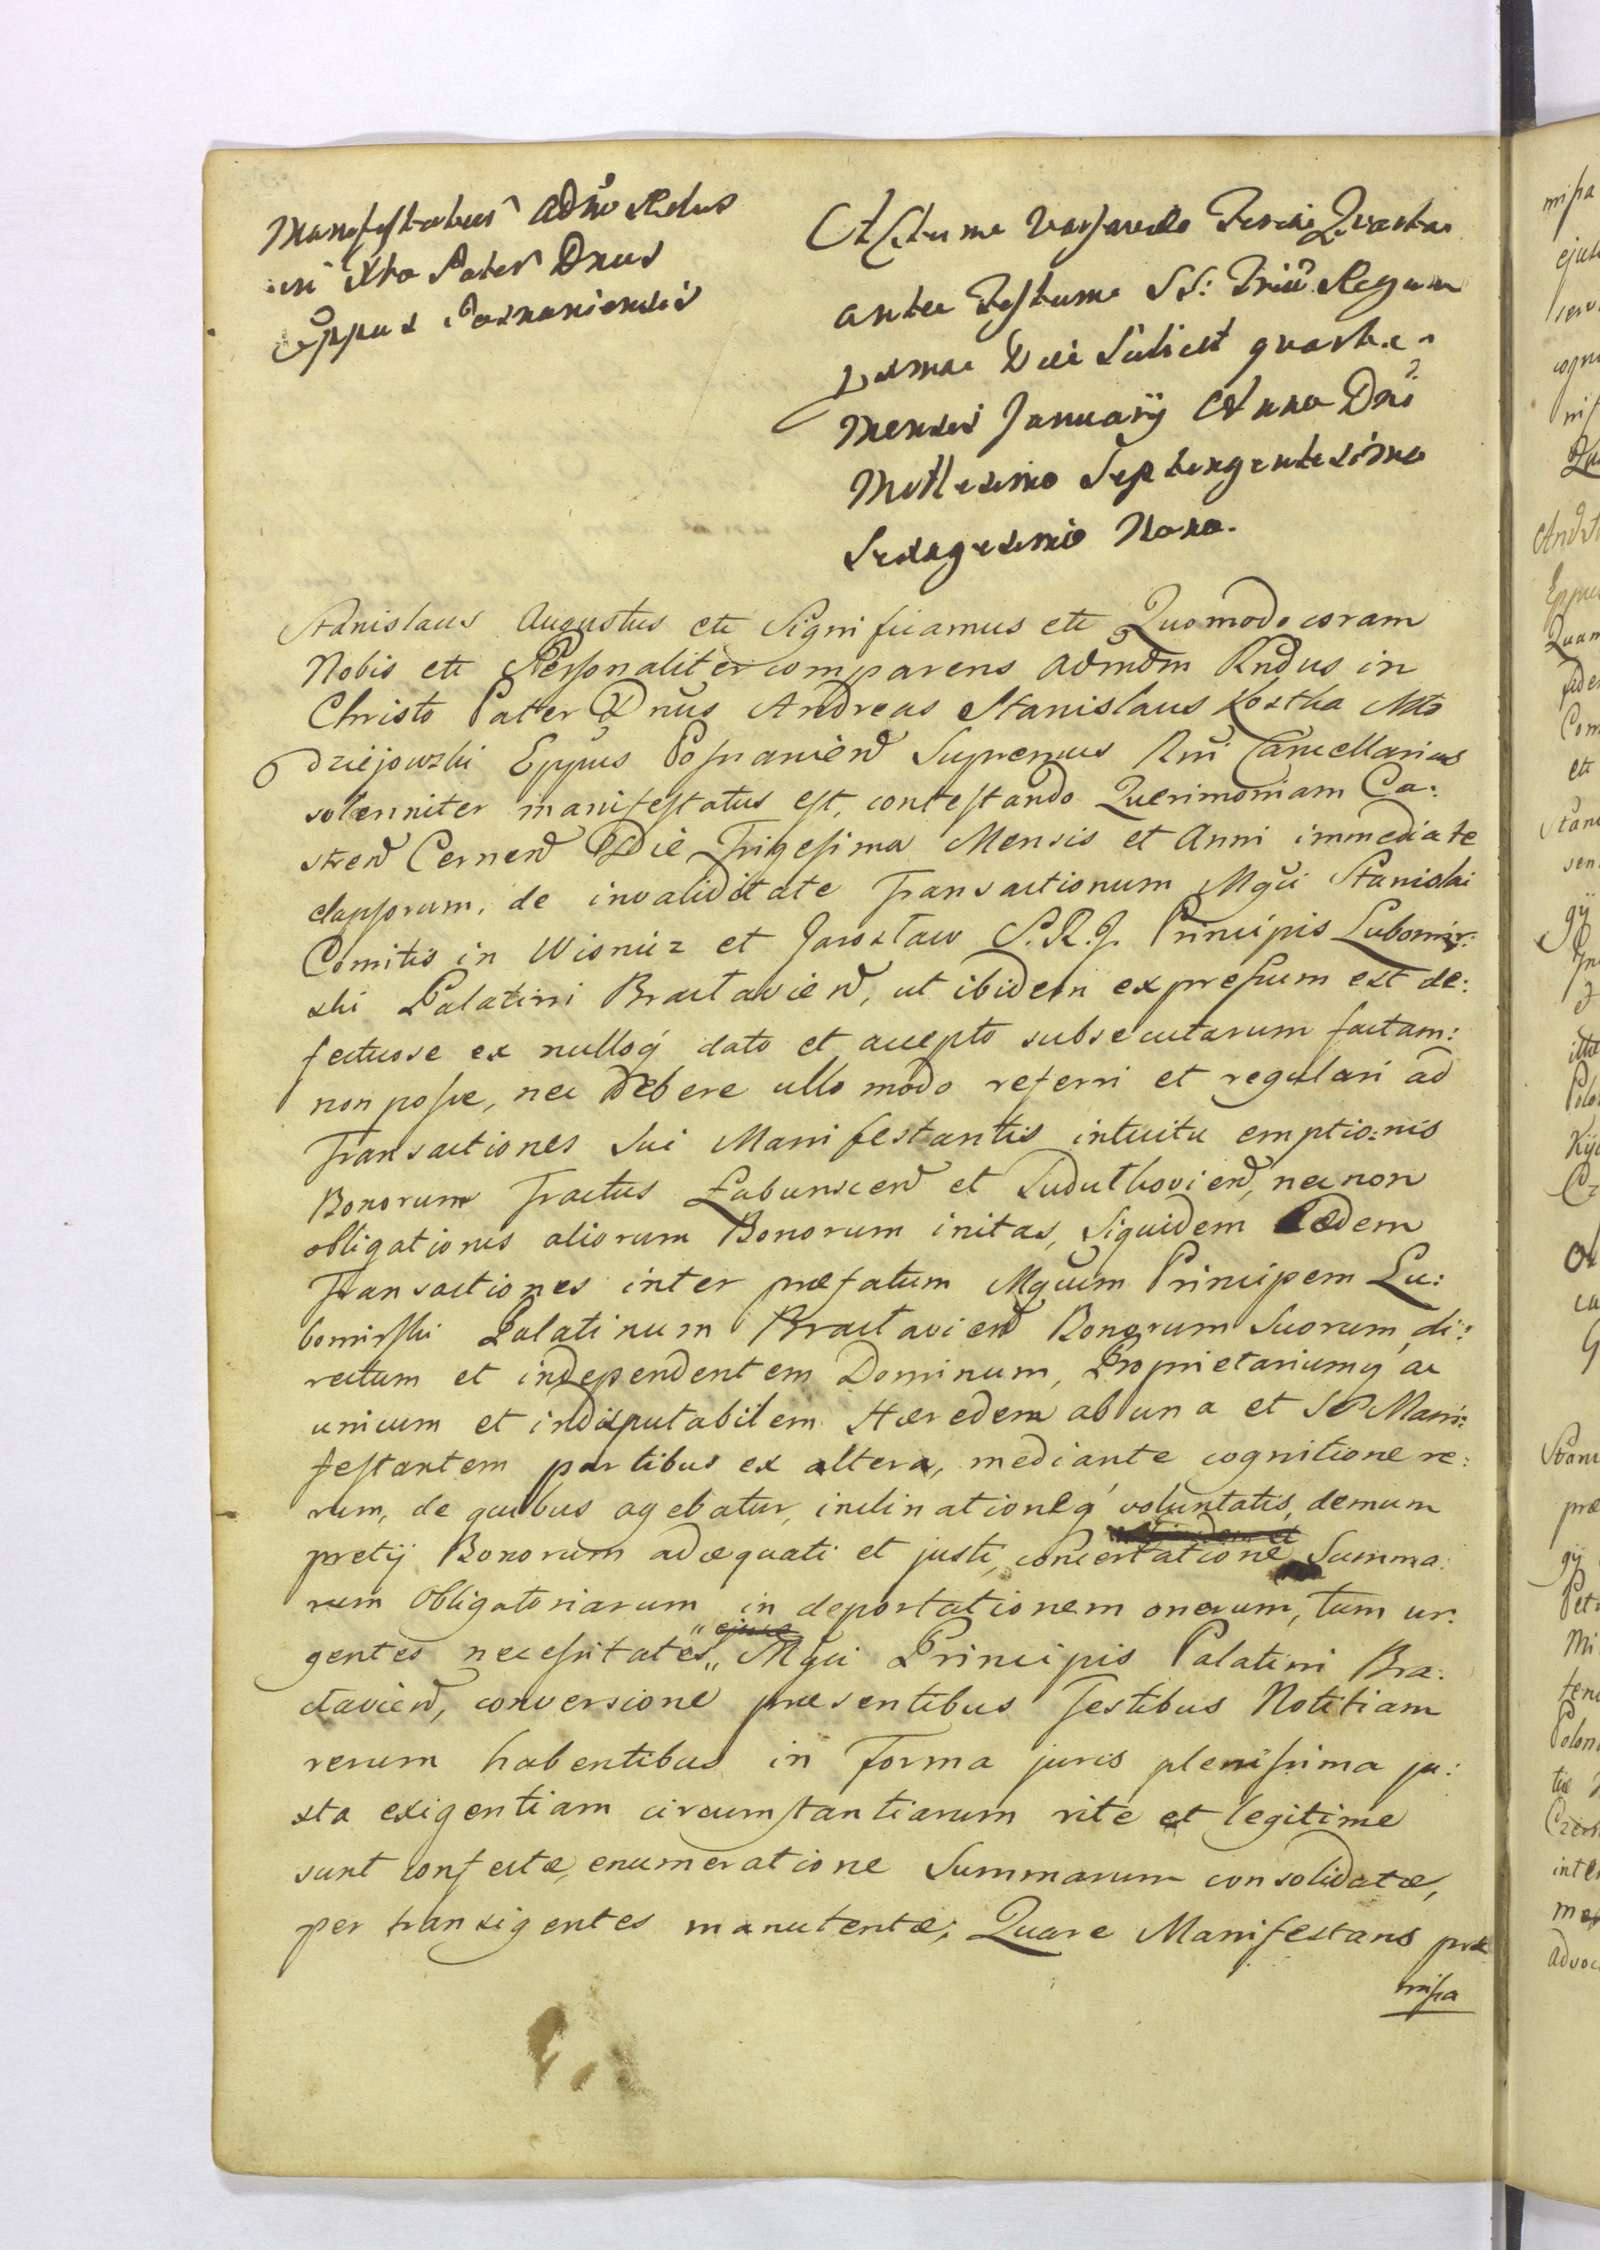 Manifestatur Admo Rndus
in Xto Pater Dnus
Eppus Posnaniensis
Actum Varsaviae Feria Quarta
ante Festum SS: Triu Regum
proxima Die Scilicet quarta
Mensis January Anno Dni
Millesimo Septengentesimo
Sexagesimo Nono.
Stanislaus Augustus etc Significamus etc Quomodo coram
Nobis etc Personaliter comparens admdm Rndus in
Christo Pater Dnus Andreas Stanislaus Kostka Mło
dziejowski Eppus Posnanien Supremus Rni Cancellarius
solenniter manifestatus est, contestando Querimoniam Ca:
stren Cernen Die Trigesima Mensis et Anni immediate
elapsorum, de invaliditate Transactionum Mgci Stanislai
Comitis in Wisnicz et Jarosław S.R.J. Principis Lubomir:
ski Palatini Bractavien, ut ibidem expressum est de:
fectuose ex nulloq dato et accepto subsecutarum factam:
non posse, nec debere ullo modo referri et regulari ad
Transactiones Sui Manifestantis intuitu emptio:nis
Bonorum Tractus Łabunscen et Sudułkovien, nec non
obligationis aliorum Bonorum initas, Siquidem Eædem
Transactiones inter præfatum Mgcum Principem Lu:
bomirski Palatinum Bractavien Bonorum Suorum di:
rectum et independentem Dominum, Proprietariumq ac
unicum et indisputabilem Hæredem ab una et Se Mani:
festantem partibus ex altera, mediante cognitione re:
rum, de quibus agebatur, inclinationeq voluntatis, demum
pretij Bonorum adæquati et justi, concertatione Summa:
rum Obligatoriarum in deportationem onerum, tum ur:
gentes necessitates „ Mgci Principis Palatini Bra:
ctavien, conversione præsentibus Testibus Notitiam
rerum habentibus in Forma juris plenissima ju:
xta exigentiam circumstantiarum rite et legitime
sunt confectæ, enumeratione Summarum consolidatæ,
per transigentes manutentæ; Quare Manifestans præ
missa